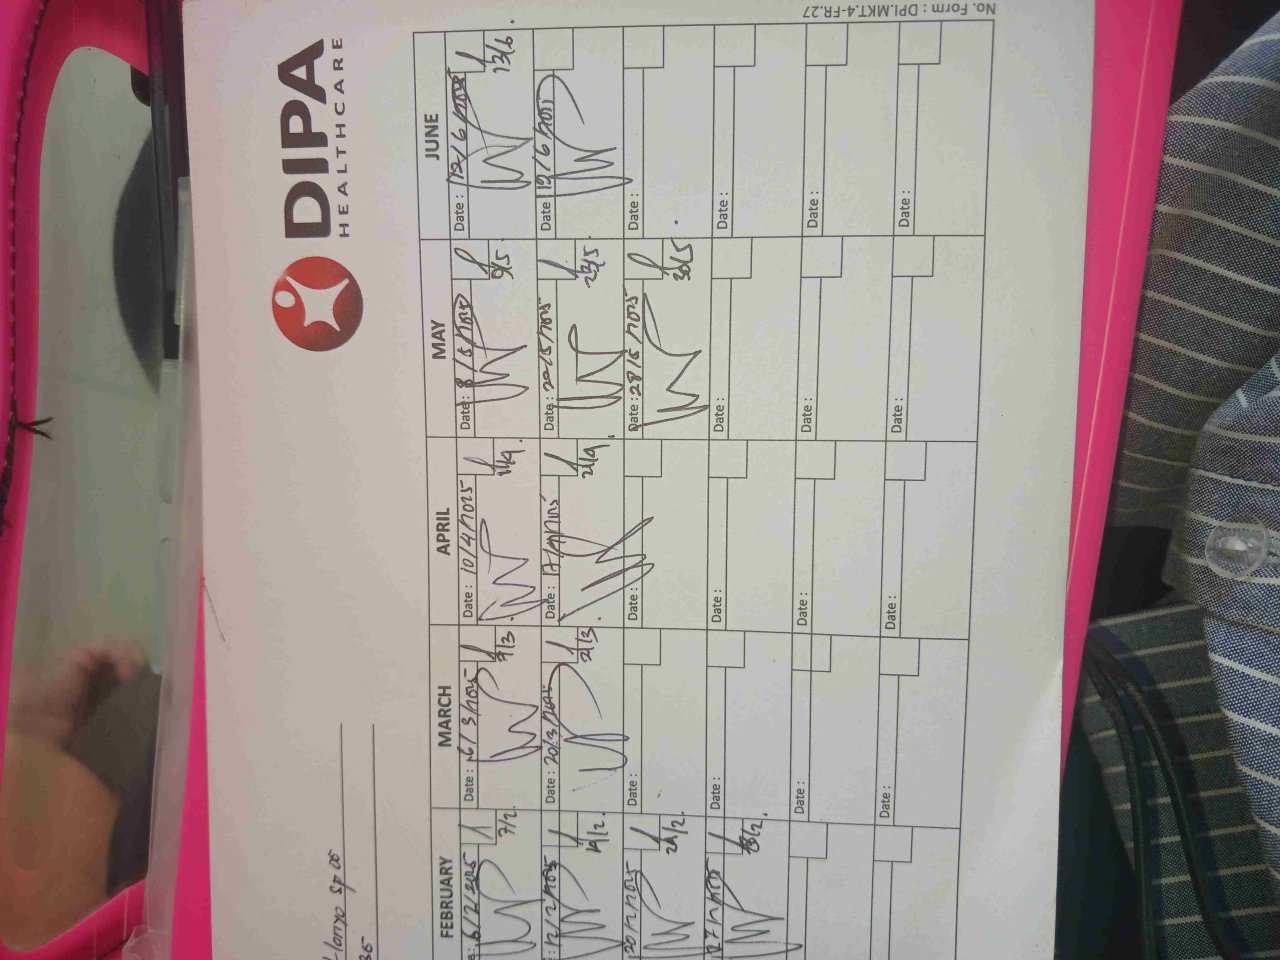 DIPA
HEALTHCARE
FEBRUARY MARCH APRIL MAY JUNE
6/2/2025 Date : 6/3/2025 Date : 10/4/2025 Date : 8/5/2025 Date : 12/6/2025
7/2. 7/3 11/4. 9/5. 13/6.
12/2/2025 Date : 20/3/2025 Date : 17/4/2025 Date : 20/5/2025 Date : 19/6/2025
14/2. 21/3 23/5.
20/2/2025 Date : Date : Date : 28/5/2025 Date :
21/2. 30/5
27/2/2025 Date : Date : Date : Date :
28/2.
Date : Date : Date : Date :
Date : Date : Date : Date :
No. Form : DPI.MKT.4-FR.27